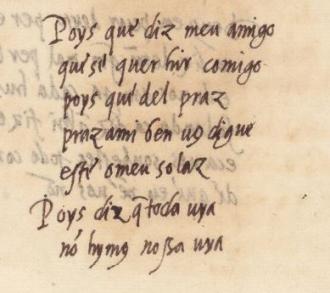 Poys que diz meu amigo
que se quer hir comigo
poys que del praz
praz ami ben vo digue
este omeu solaz
Poys diz q̃ toda uya
nó hymo nossa uya